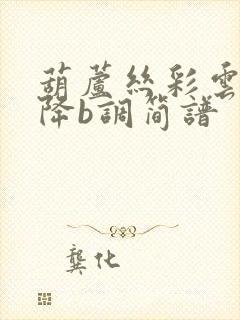 葫蘆絲彩雲
降b調简譜
龔化